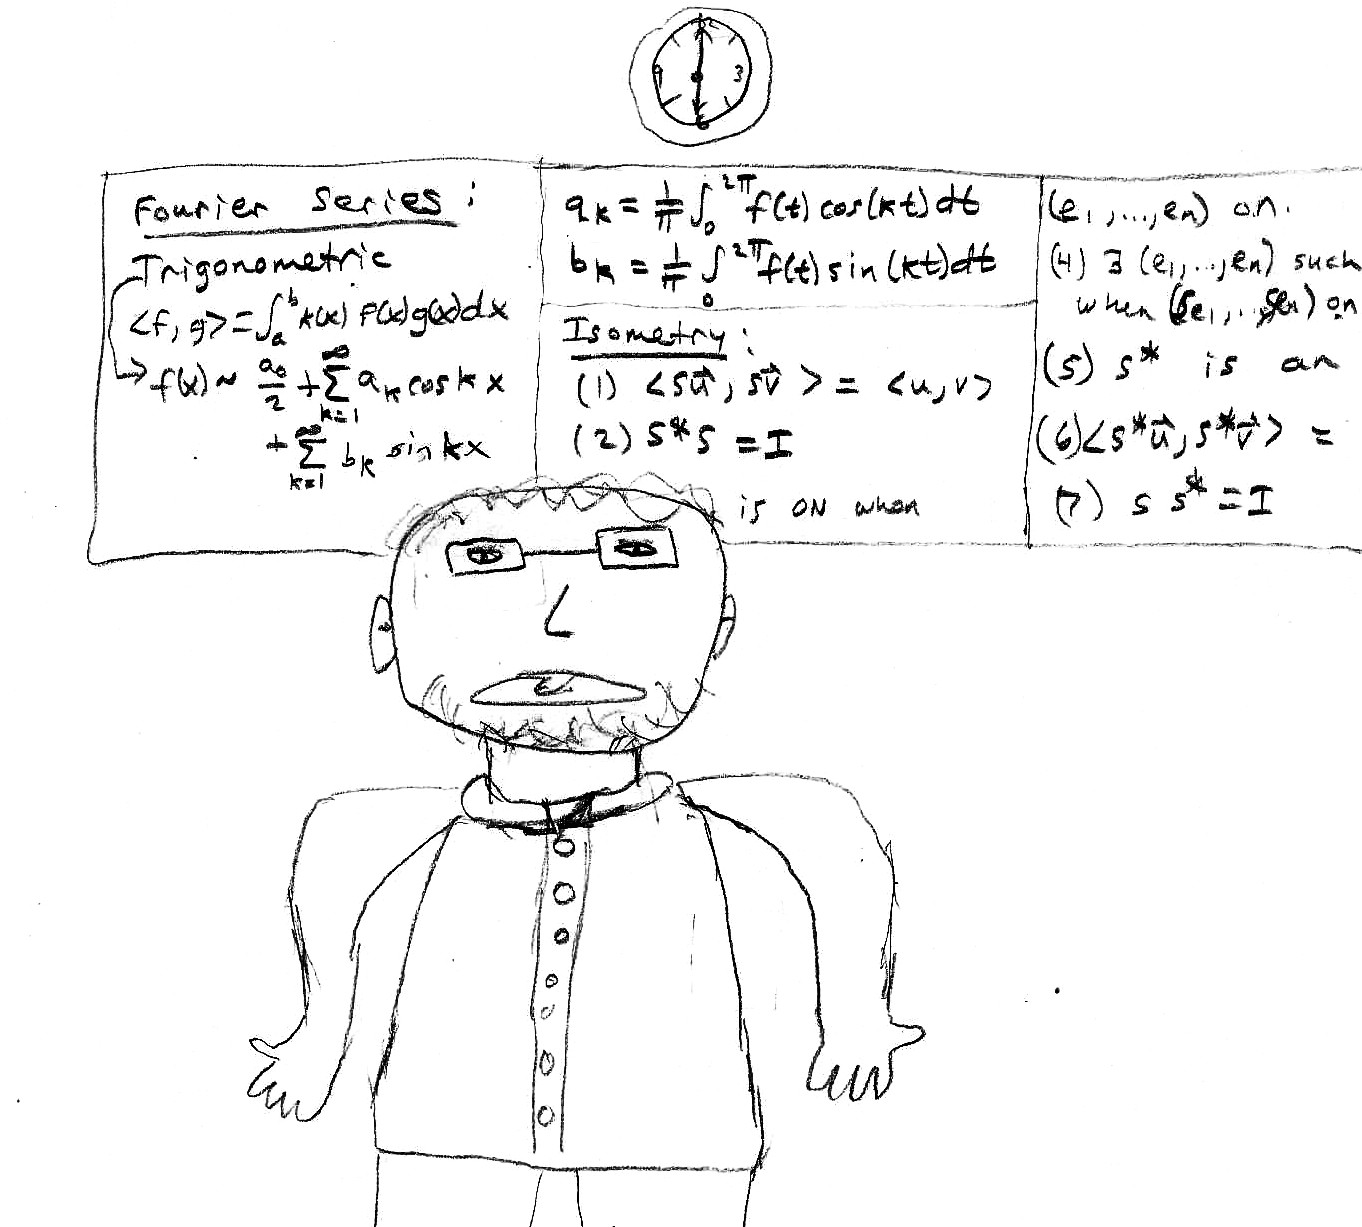 12
9 3
6
Fourier Series:
Trigonometric
<f, g> = ∫_a^b k(x) f(x)g(x)dx
→ f(x) ~ a₀/2 + ∑_{k=1}^∞ a_k cos k x
+ ∑_{k=1}^∞ b_k sin kx
a_k = 1/π ∫_0^{2π} f(t) cos(kt) dt
b_k = 1/π ∫_0^{2π} f(t) sin(kt) dt
Isometry:
(1) <Su⃗, Sv⃗> = <u, v>
(2) S*S = I
is ON when
(e₁, ..., eₙ) on.
(4) ∃ (e₁, ..., eₙ) such
when (Se₁, ..., Seₙ) on
(5) S* is an
(6) <S*u⃗, S*v⃗> =
(7) S S* = I